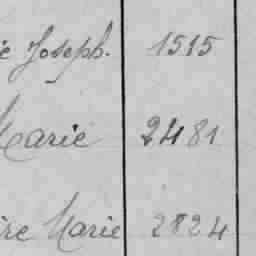 Joseph. 1515
Marie 2481
Marie 2824